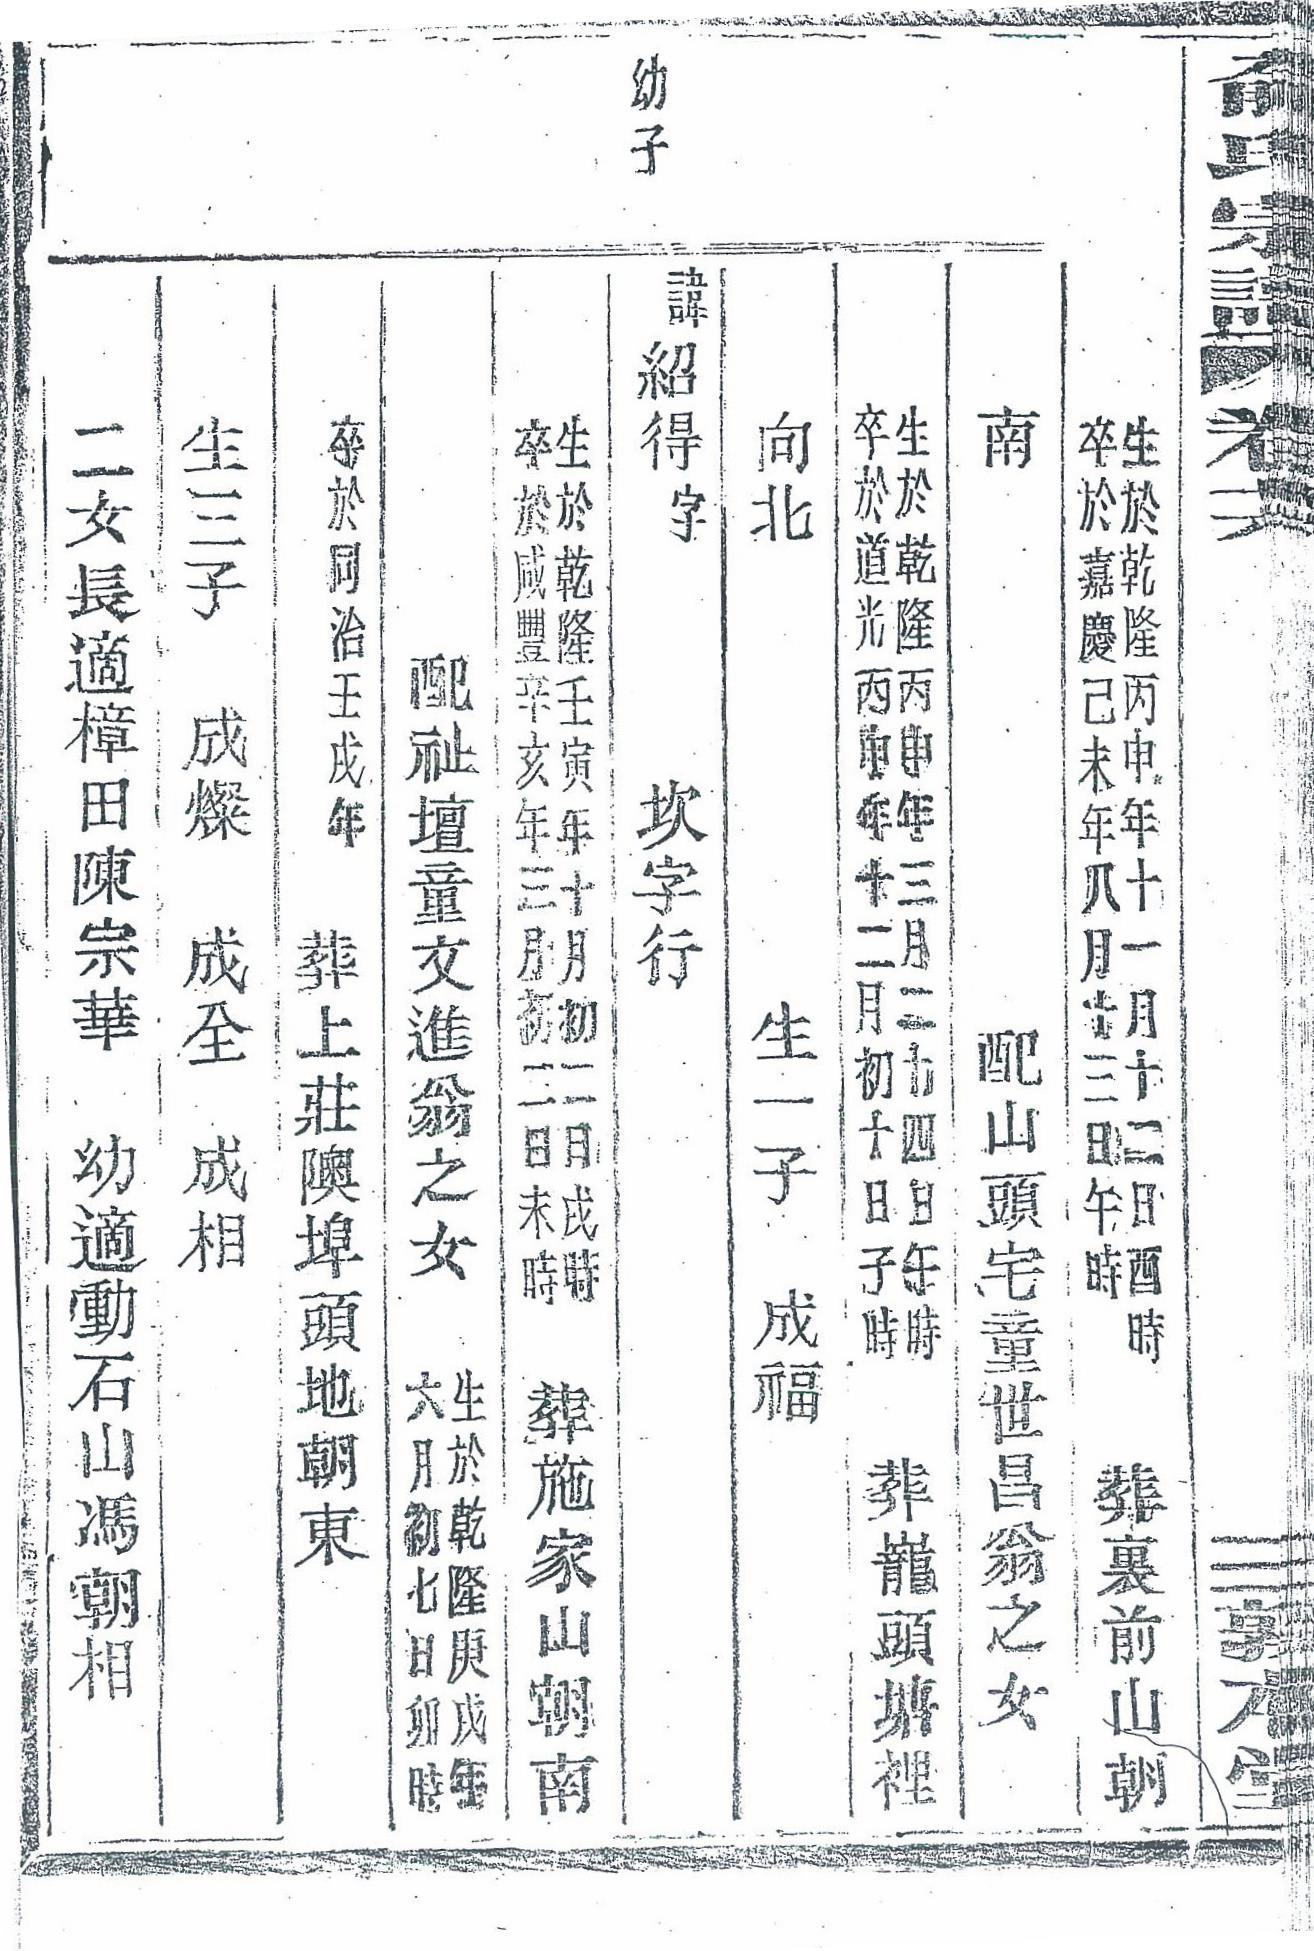 俞氏宗譜 卷六
生於乾隆丙申年十一月十二日酉時
卒於嘉慶己未年八月廿三日午時
葬裏前山朝
南 配山頭宅童世昌翁之女
生於乾隆丙申年三月二十四日午時
卒於道光丙申年十二月初十日子時
葬龍頭塘裡
向北 生一子 成福
幼子
諱紹得字 坎字行
生於乾隆壬寅年十月初二日戌時
卒於咸豐辛亥年三月初二日未時
葬施家山朝南
配祉壇童文進翁之女
生於乾隆庚戌年
六月初七日卯時
卒於同治壬戌年
葬上莊隩埠頭地朝東
生三子 成燦 成全 成相
二女長適樟田陳宗華 幼適動石山馮朝相